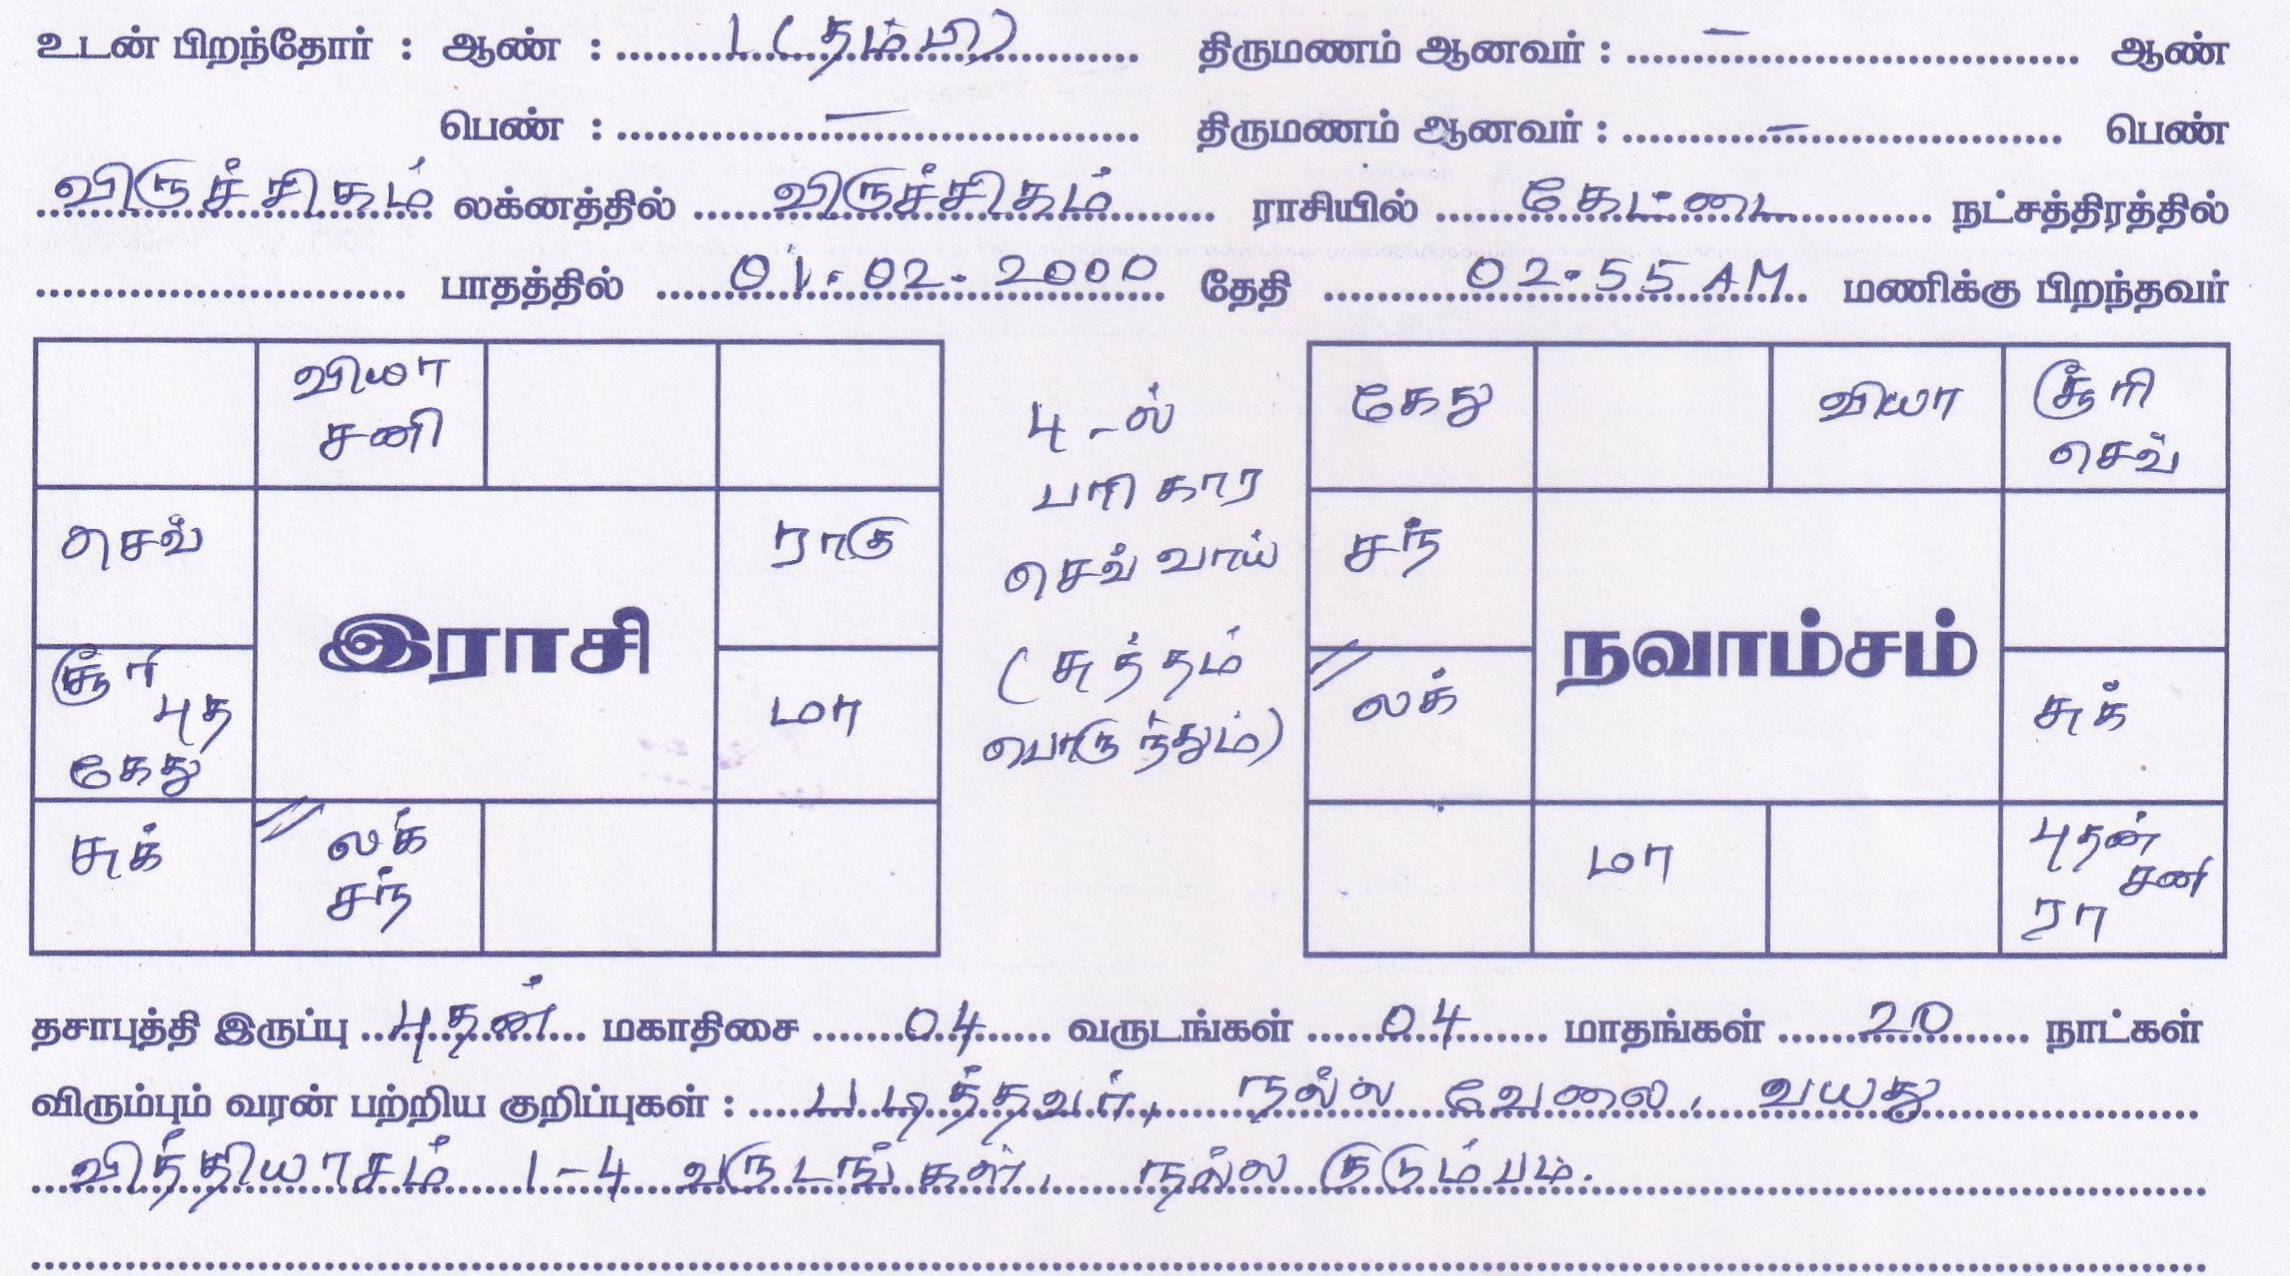 உடன் பிறந்தோர் : ஆண் : 1 (தம்பி) திருமணம் ஆனவர் : – ஆண்
பெண் : – திருமணம் ஆனவர் : – பெண்
விருச்சிகம் லக்னத்தில் விருச்சிகம் ராசியில் கேட்டை நட்சத்திரத்தில்
பாதத்தில் 01.02.2000 தேதி 02.55 AM மணிக்கு பிறந்தவர்
வியா
சனி
செவ்
ராகு
இராசி
சூரி
புத
கேது
மா
சுக்
லக்
சந்
4-ல்
பரிகார
செவ்வாய்
(சுத்தம்
பொருந்தும்)
கேது
வியா
சூரி
செவ்
சந்
நவாம்சம்
லக்
சுக்
மா
புதன்
சனி
ரா
தசாபுத்தி இருப்பு புதன் மகாதிசை 04 வருடங்கள் 04 மாதங்கள் 20 நாட்கள்
விரும்பும் வரன் பற்றிய குறிப்புகள் : படித்தவர், நல்ல வேலை, வயது
வித்தியாசம் 1-4 வருடங்கள், நல்ல குடும்பம்.